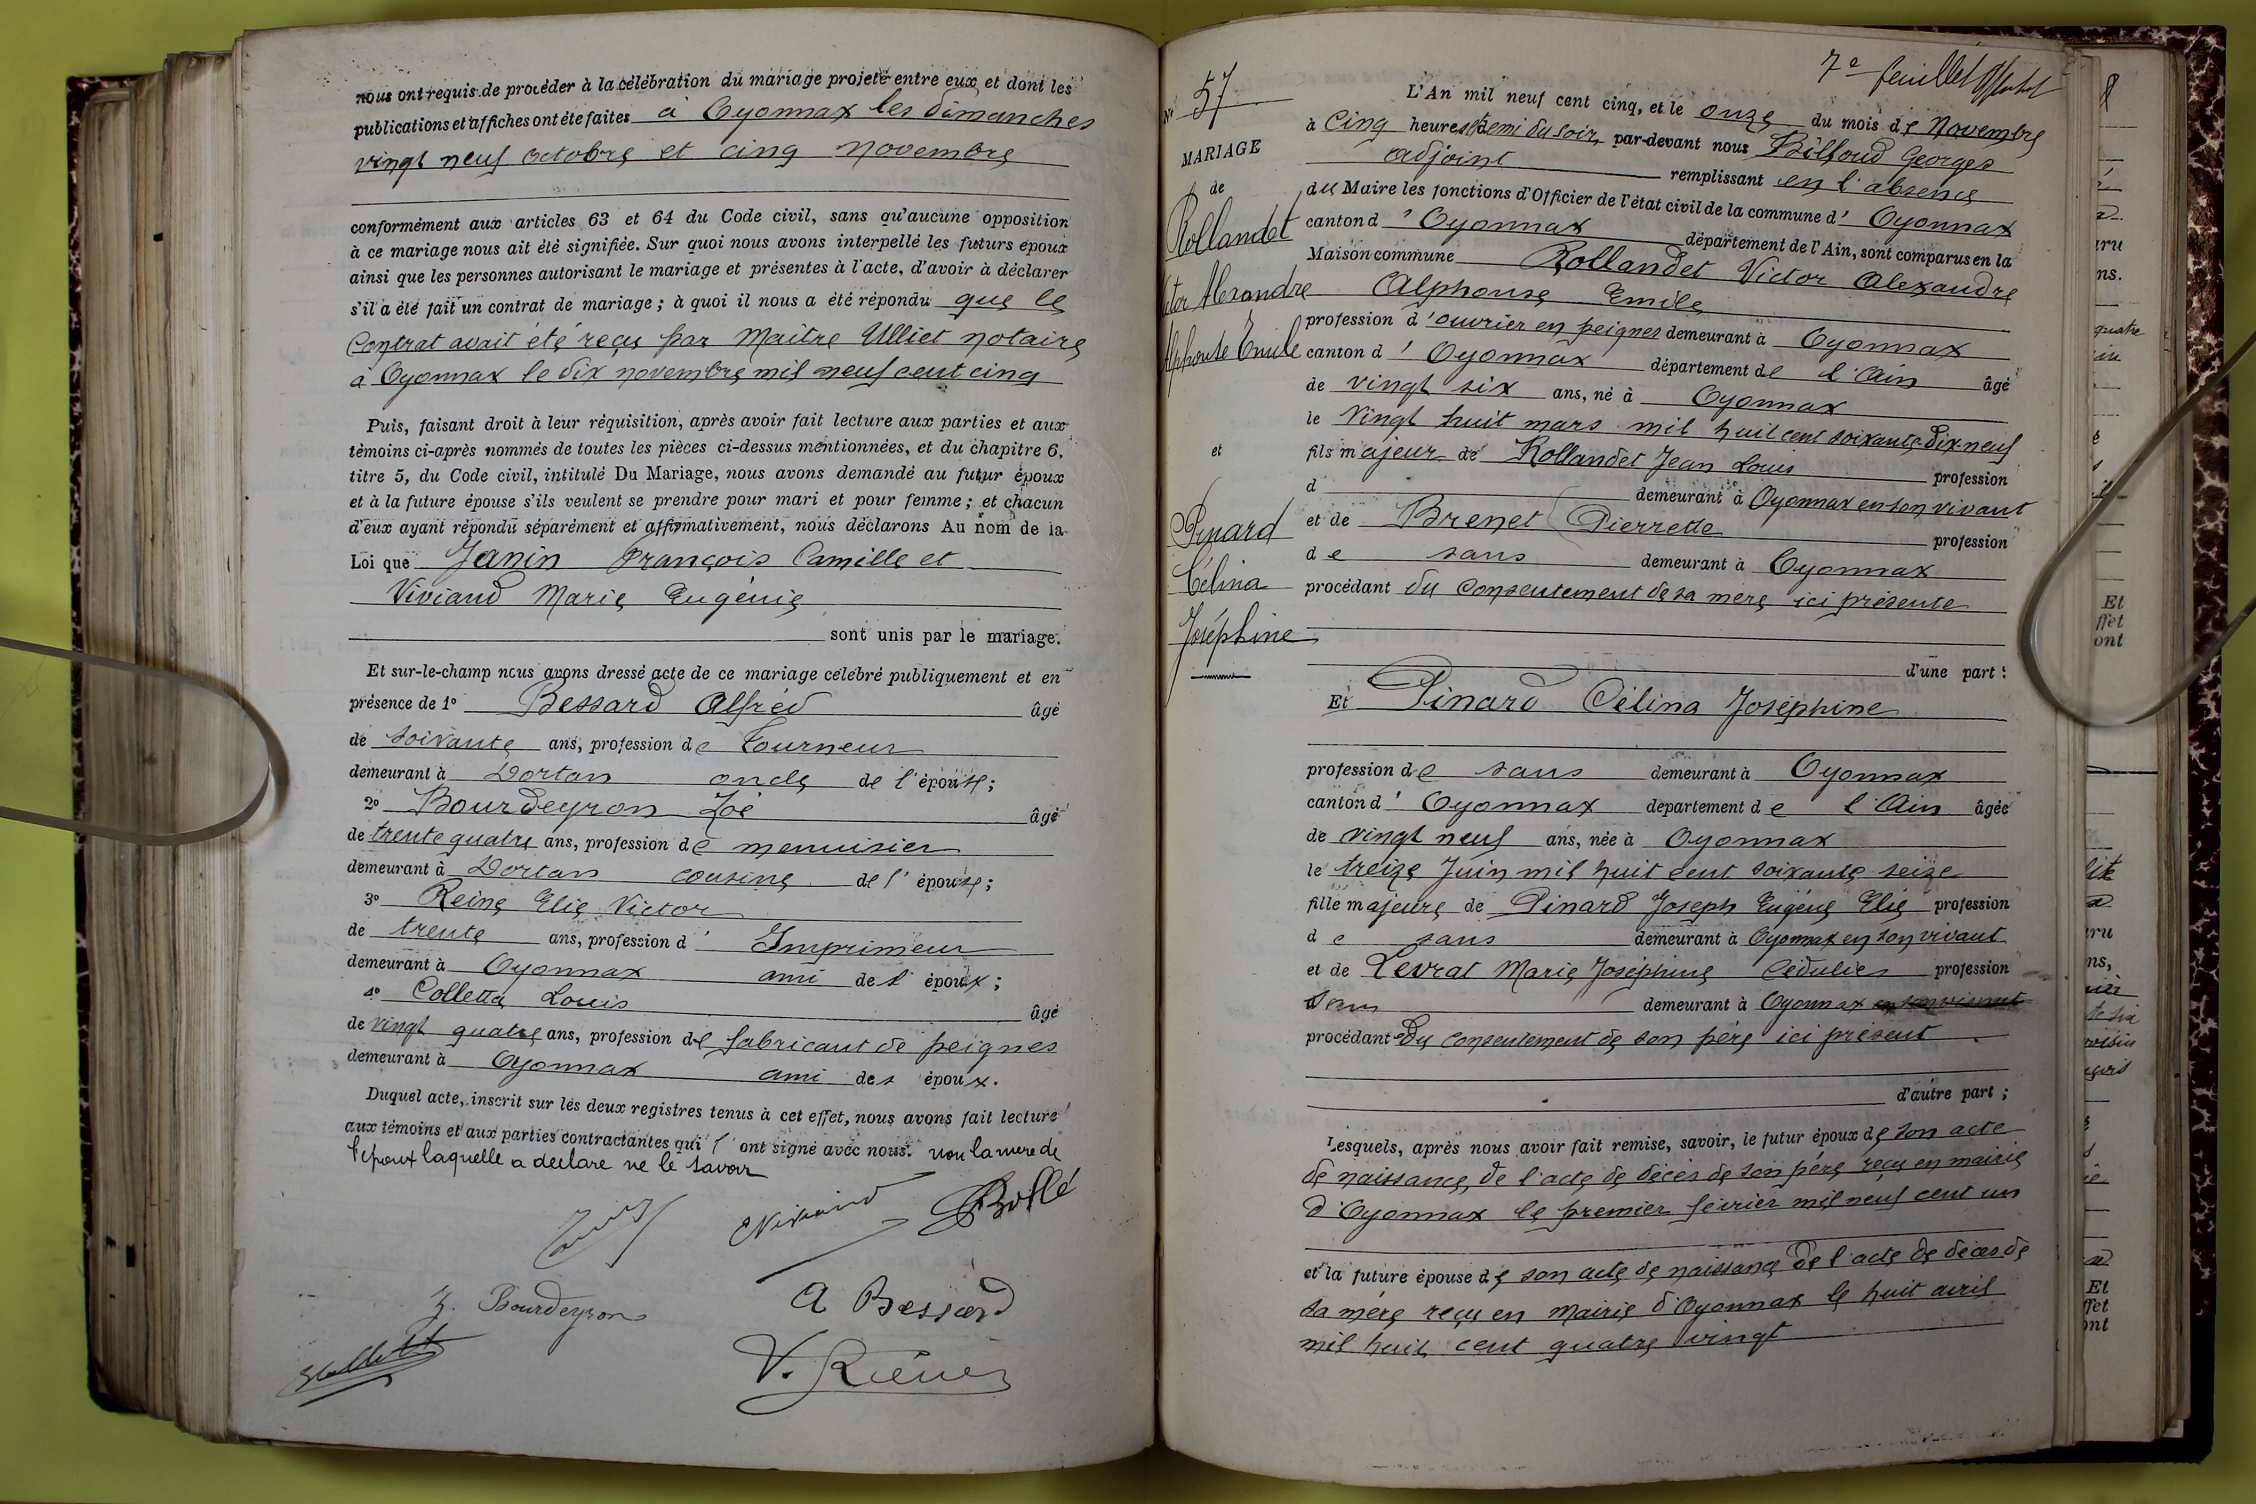 nous ont requis de procéder à la célébration du mariage projeté entre eux, et dont les
publications et affiches ont été faites à Oyonnax les dimanches
vingt neuf octobre et cinq novembre
conformément aux articles 63 et 64 du Code civil, sans qu'aucune opposition
à ce mariage nous ait été signifiée. Sur quoi nous avons interpellé les futurs époux
ainsi que les personnes autorisant le mariage et présentes à l'acte, d'avoir à déclarer
s'il a été fait un contrat de mariage; à quoi il nous a été répondu que le
Contrat avait été reçu par Maître Ulliet notaire
à Oyonnax le dix novembre mil neuf cent cinq
Puis, faisant droit à leur réquisition, après avoir fait lecture aux parties et aux
témoins ci-après nommés de toutes les pièces ci-dessus mentionnées, et du chapitre 6,
titre 5, du Code civil, intitulé Du Mariage, nous avons demandé au futur époux
et à la future épouse s'ils veulent se prendre pour mari et pour femme; et chacun
d'eux ayant répondu séparément et affirmativement, nous déclarons Au nom de la
Loi que Janin François Camille et
Viviand Marie Eugénie
sont unis par le mariage.
Et sur-le-champ nous avons dressé acte de ce mariage célébré publiquement et en
présence de 1° Bessard Alfred âgé
de soixante ans, profession de Tourneur
demeurant à Dortan oncle de l'épouse;
2° Bourdeyron Zoé âgé
de trente quatre ans, profession de menuisier
demeurant à Dortan cousine de l'épouse;
3° Reine Elie Victor
de trente ans, profession d'Imprimeur
demeurant à Oyonnax ami des époux;
4° Colletta Louis âgé
de vingt quatre ans, profession de fabricant de peignes
demeurant à Oyonnax ami des époux.
Duquel acte, inscrit sur les deux registres tenus à cet effet, nous avons fait lecture
aux témoins et aux parties contractantes qui l'ont signé avec nous. non la mere de
l'epoux laquelle a declare ne le savoir
E Viviand
Z. Bourdeyron
A Bessard
7e feuillet
N° 57
MARIAGE
de
Rollandet
Victor Alexandre
Alphonse Emile
et
Pinard
Célina
Joséphine
L'An mil neuf cent cinq, et le onze du mois de Novembre
à Cinq heures et demi du soir, par-devant nous Bilfoud Georges
adjoint remplissant en l'absence
du Maire les fonctions d'Officier de l'état civil de la commune d' Oyonnax
canton d' Oyonnax département de l'Ain, sont comparus en la
Maison commune Rollandet Victor Alexandre
Alphonse Emile
profession d'ouvrier en peignes demeurant à Oyonnax
canton d' Oyonnax département de l'Ain âgé
de vingt six ans, né à Oyonnax
le Vingt huit mars mil huit cent soixante dix neuf
fils majeur de Rollandet Jean Louis profession
d demeurant à Oyonnax en son vivant
et de Brenet Pierrette profession
de sans demeurant à Oyonnax
procédant du consentement de sa mère ici présente
d'une part:
Et Pinard Célina Joséphine
profession de sans demeurant à Oyonnax
canton d' Oyonnax département de l'Ain âgée
de vingt neuf ans, née à Oyonnax
le treize Juin mil huit cent soixante seize
fille majeure de Pinard Joseph Eugène Elie profession
de sans demeurant à Oyonnax en son vivant
et de Levrat Marie Joséphine profession
sans demeurant à Oyonnax en son vivant
procédant du consentement de son père ici présent
d'autre part;
Lesquels, après nous avoir fait remise, savoir, le futur époux de son acte
de naissance, de l'acte de décès de son père reçu en mairie
d'Oyonnax le premier février mil neuf cent un
et la future épouse de son acte de naissance de l'acte de décès de
sa mère reçu en Mairie d'Oyonnax le huit avril
mil huit cent quatre vingt